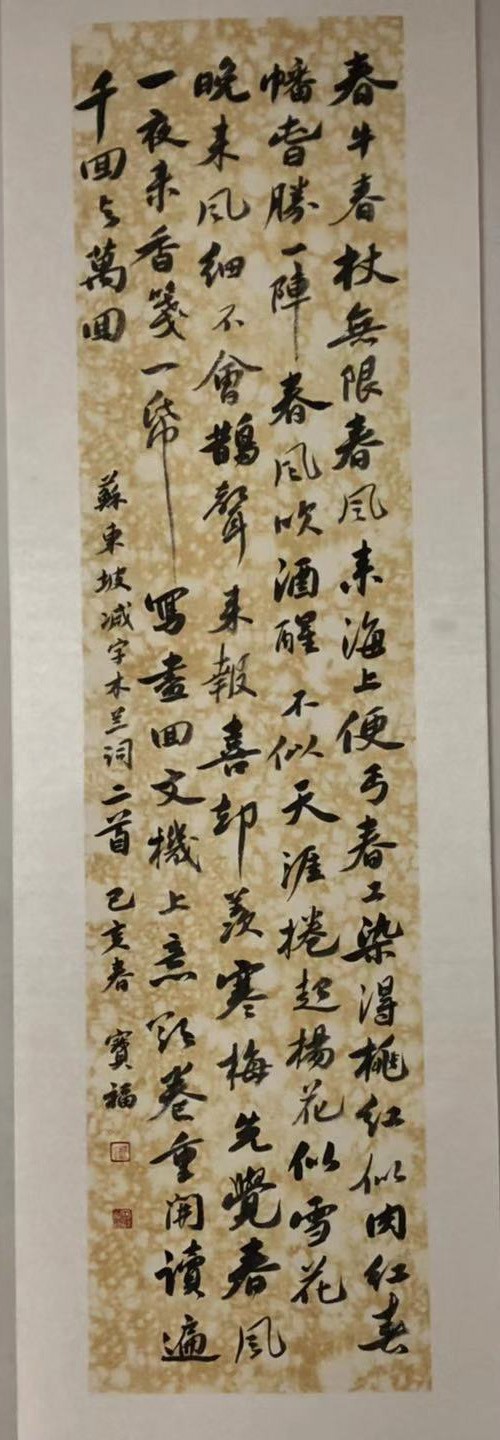 春牛春杖無限春風来海上便丐春工染得桃红似肉红春
幡旾勝一陣春風吹酒醒不似天涯捲起楊花似雪花
晚来風細不會鵲聲来報喜却羡寒梅先覺春風
一夜来香箋一帋寫盡回文機上意欲卷重開讀遍
千回与萬回
蘇東坡减字木兰词二首 己亥春 寶福